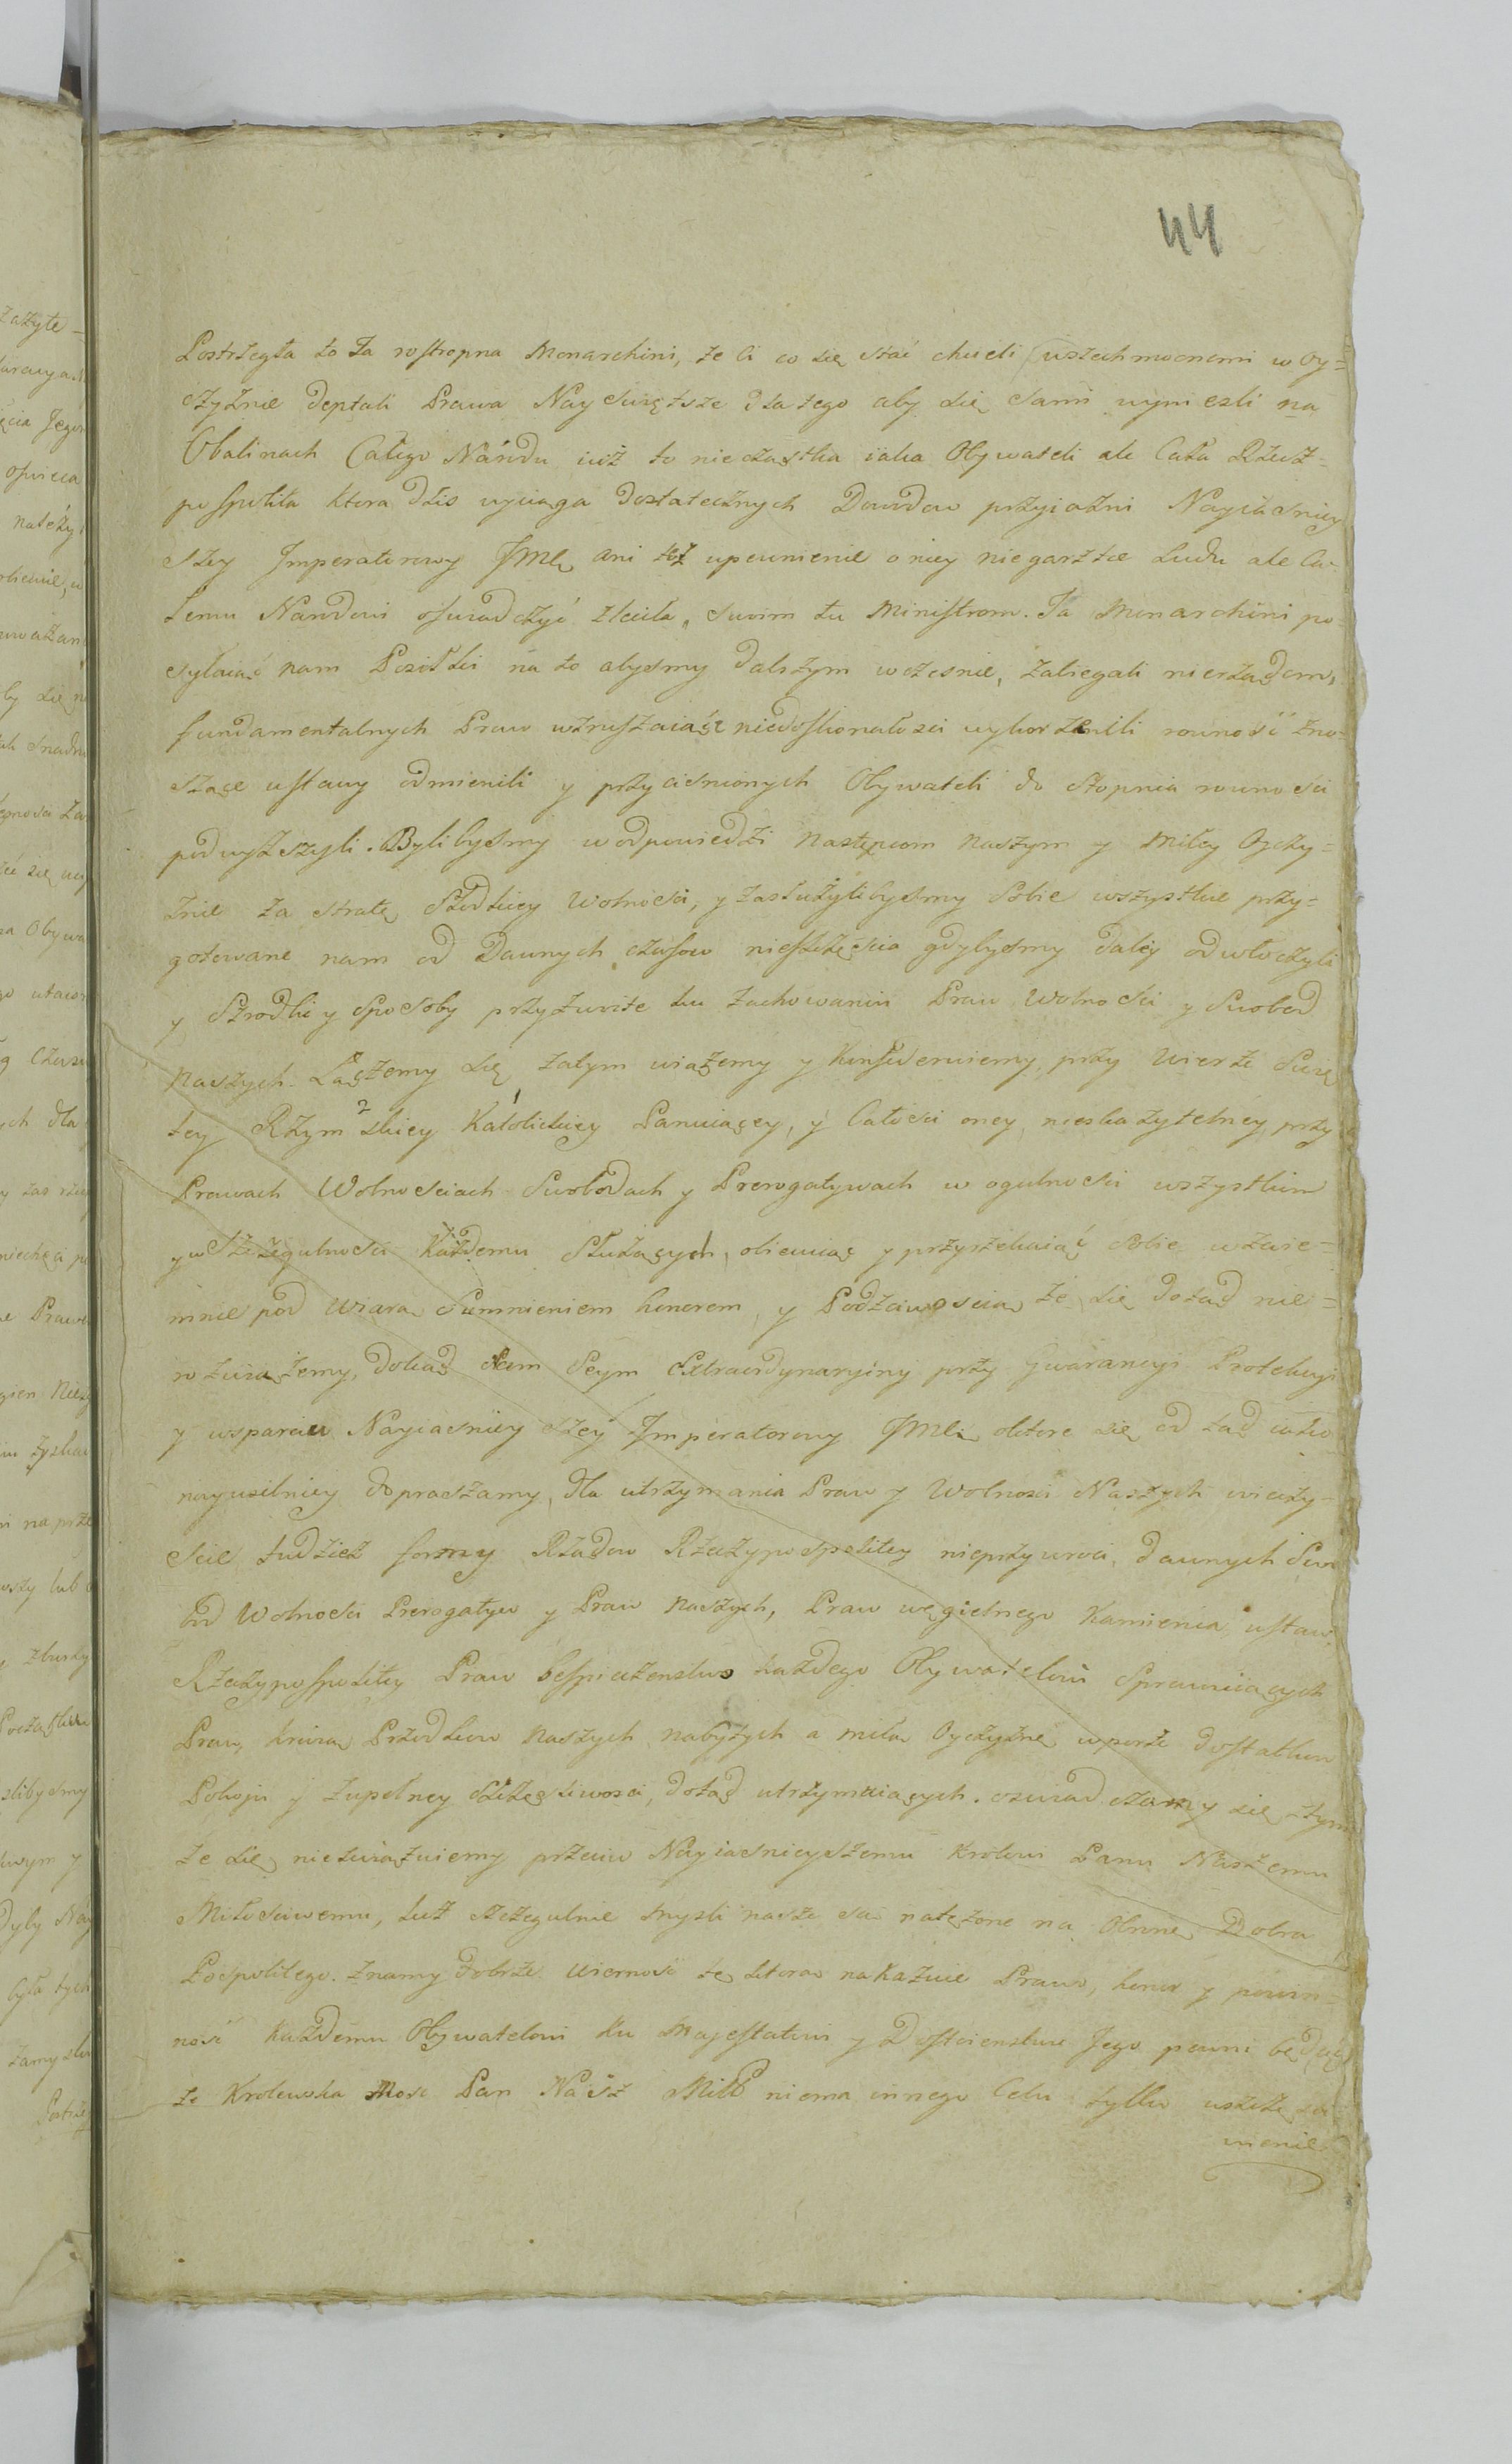 44
Postrzegła to ta rostropna Monarchini, że ci co się stać chcieli wszechmocnemi w Oy=
czyznie deptali Prawa Nayswiętsze dla tego aby się sami wyniesli na
Obalinach Całego Narodu iuż to nieczastka iaka Obywateli ale Cała Rzecz=
pospolita Ktora dzis wyciąga dostatecznych Dowodow przyiazni Nayiasniey
szey Imperatorowy JMCi ani też upewnienie o niey niegarztce Ludu ale Ca-
łemu Narodowi oswiadczyć zleciła, swoim tu Ministrom. Ta Monarchini po-
syłaiąc nam Posiłki na to abysmy dalszym wczesnie, zabiegali nierządom,
fundamentalnych Praw wzruszaiące niedoskonałosci wykorzenili rownosć zno-
szące ustawy odmienili y przycisnionych Obywateli do stopnia rownosci
podwyższyli. Bylibysmy w odpowiedzi następcom naszym y miłey Oyczy=
znie za stratę słodkiey wolnosci, y zasłużylibysmy sobie wszystkie przy=
gotowane nam od Dawnych czasow nieszczęscia gdybysmy daley odwłoczyli
y Szrodki y sposoby przyzwoite ku zachowaniu Praw Wolnosci y Swobod
Naszych. Łączemy się zatym wiążemy y Konfederuiemy, przy Wierze Swię
tey Rzymskiey Katolickiey Panuiącey, y Całosci oney nieskazytelney, przy
Prawach Wolnosciach Swobodach y Prerogatywach w ogulnosci wszystkim
y w szczegulnosci Każdemu Służących, obiecuiąc y przyrzekaiąc sobie wzaie=
mnie pod Wiarą Sumnieniem honorem, y Podzciwoscią że się dotąd nie=
rozwiążemy, dokąd Seym Extraordynaryiny przy Gwarancyi Protekcyi
y wsparciu Nayiasnieyszey Imperatorowy JMCi oktore się od tąd iako
nayusilniey dopraszamy, dla utrzymania Praw y Wolnosci Naszych wieczy-
scie tudzież formy Rządow Rzeczypospolitey nieprzywroci, dawnych Swo
bod Wolnosci Prerogatyw y Praw naszych, Praw węgielnego Kamienia ustaw
Rzeczypospolitey Praw bespieczenstwo każdego Obywatelow sprawuiących
Praw, krwią Przodkow Naszych nabytych a miłą Oyczyznę wporze dostatkow
Pokoju y zupełney szczęsliwosci, dotąd utrzymuiących. oswiadczamy się ztym
że się niezwiązuiemy przeciw Nayiasnieyszemu Krolowi Panu Naszemu
Miłosciwemu, tuż szczegulnie mysli nasze są natężone na Obronę Dobra
Pospolitego. znamy dobrze wiernosć tę ktorą nakazuie Prawo, honor y powin=
nosć każdemu Obywatelowi ku Majestatowi y Dostoienstwu Jego pewni będąc
że Krolewska Mość Pan Nasz Miłł niema innego Celu tylko uszczęsli
wienie